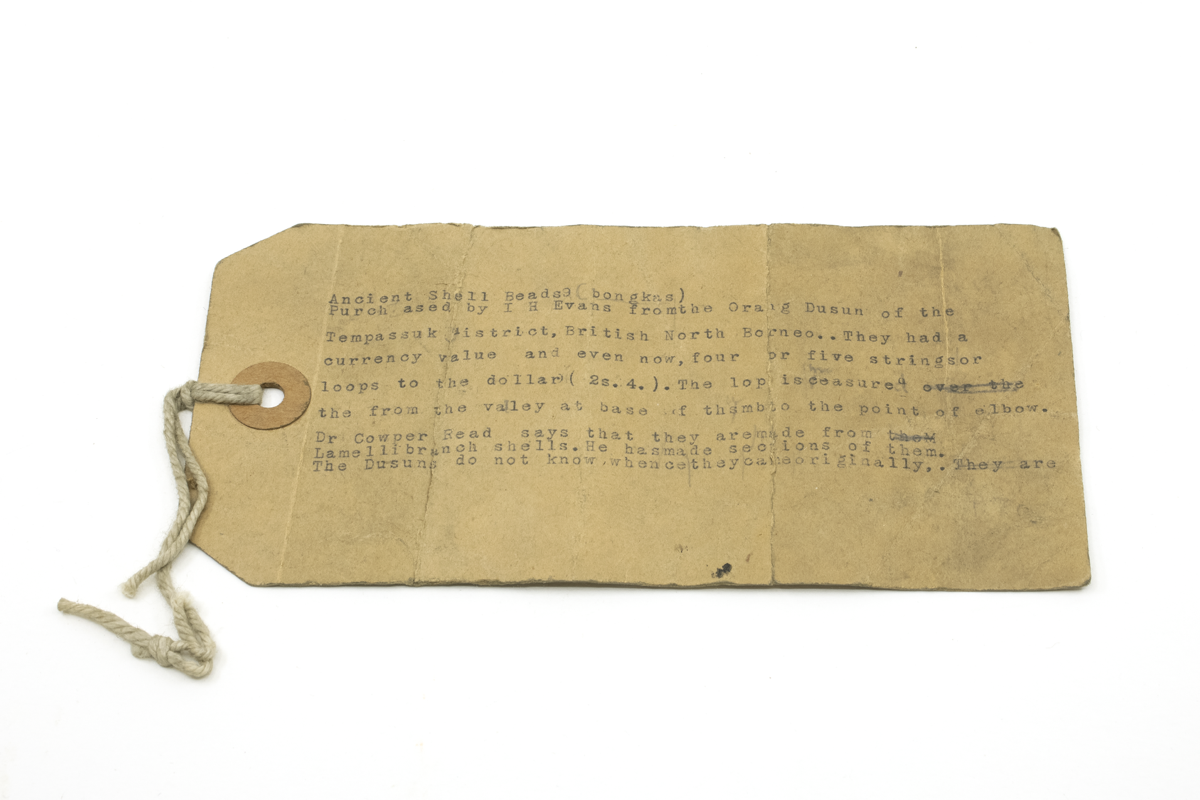 Ancient Shell Beads ( bongkas)
Purch ased by I H Evans fromthe Orang Dusun of the
Tempassuk district, British North Borneo..They had a
currency value and even now, four or five stringsor
loops to the dollar ( 2s.4.).The lop is over the
the from the valley at base of thsmbto the point of elbow.
Dr Cowper Read says that they aremade from them
Lamellibranch shells.He hasmade sections of them.
The Dusuns do not know whencetheycameoriginally,.They are